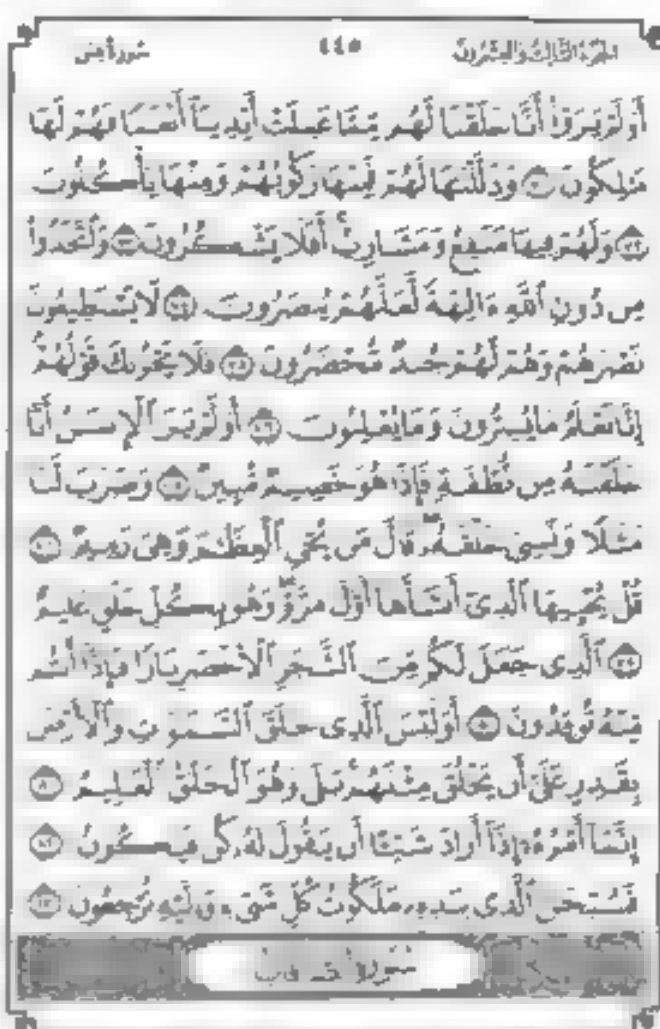 الجزء الثالث والعشرون ٤٤٥ سورة يس
أَوَلَمْ يَرَوْا۟ أَنَّا خَلَقْنَا لَهُم مِّمَّا عَمِلَتْ أَيْدِينَآ أَنْعَـٰمًا فَهُمْ لَهَا
مَـٰلِكُونَ ٧١ وَذَلَّلْنَـٰهَا لَهُمْ فَمِنْهَا رَكُوبُهُمْ وَمِنْهَا يَأْكُلُونَ
٧٢ وَلَهُمْ فِيهَا مَنَـٰفِعُ وَمَشَارِبُ أَفَلَا يَشْكُرُونَ ٧٣ وَٱتَّخَذُوا۟
مِن دُونِ ٱللَّهِ ءَالِهَةً لَّعَلَّهُمْ يُنصَرُونَ ٧٤ لَا يَسْتَطِيعُونَ
نَصْرَهُمْ وَهُمْ لَهُمْ جُندٌ مُّحْضَرُونَ ٧٥ فَلَا يَحْزُنكَ قَوْلُهُمْ
إِنَّا نَعْلَمُ مَا يُسِرُّونَ وَمَا يُعْلِنُونَ ٧٦ أَوَلَمْ يَرَ ٱلْإِنسَـٰنُ أَنَّا
خَلَقْنَـٰهُ مِن نُّطْفَةٍ فَإِذَا هُوَ خَصِيمٌ مُّبِينٌ ٧٧ وَضَرَبَ لَنَا
مَثَلًا وَنَسِىَ خَلْقَهُۥ قَالَ مَن يُحْىِ ٱلْعِظَـٰمَ وَهِىَ رَمِيمٌ ٧٨
قُلْ يُحْيِيهَا ٱلَّذِىٓ أَنشَأَهَآ أَوَّلَ مَرَّةٍ وَهُوَ بِكُلِّ خَلْقٍ عَلِيمٌ
٧٩ ٱلَّذِى جَعَلَ لَكُم مِّنَ ٱلشَّجَرِ ٱلْأَخْضَرِ نَارًا فَإِذَآ أَنتُم
مِّنْهُ تُوقِدُونَ ٨٠ أَوَلَيْسَ ٱلَّذِى خَلَقَ ٱلسَّمَـٰوَٰتِ وَٱلْأَرْضَ
بِقَـٰدِرٍ عَلَىٰٓ أَن يَخْلُقَ مِثْلَهُم بَلَىٰ وَهُوَ ٱلْخَلَّـٰقُ ٱلْعَلِيمُ ٨١
إِنَّمَآ أَمْرُهُۥٓ إِذَآ أَرَادَ شَيْـًٔا أَن يَقُولَ لَهُۥ كُن فَيَكُونُ ٨٢
فَسُبْحَـٰنَ ٱلَّذِى بِيَدِهِۦ مَلَكُوتُ كُلِّ شَىْءٍ وَإِلَيْهِ تُرْجَعُونَ ٨٣